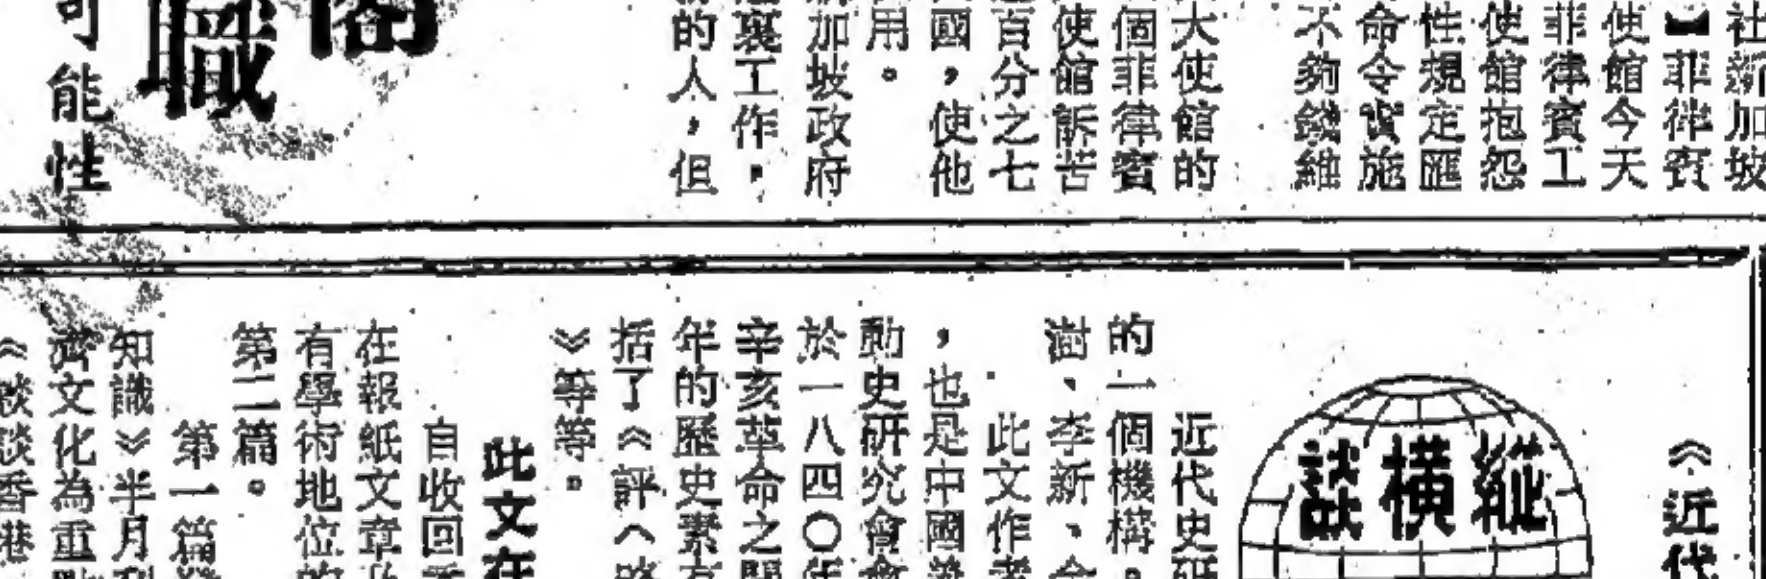 社新加坡
】菲律賓
使館今天
菲律賓工
使館抱怨
性規定匯
命令實施
不夠錢維
大使館的
個菲律賓
使館訴苦
百分之七
國，使他
用。
加坡政府
裏工作。
的人，但
閣
職
可能性
《近代
縱橫談
近代史研
的一個機構。
澍、李新、
此文作者
，也是中國
動史研究會
於一八四〇年
辛亥革命之間
年的歷史素有
括了《評〈
》等等。
此文在
自收回香
在報紙文章
有學術地位的
第二篇。
第一篇發
知識》半月刊
濟文化為重點
《談談香港